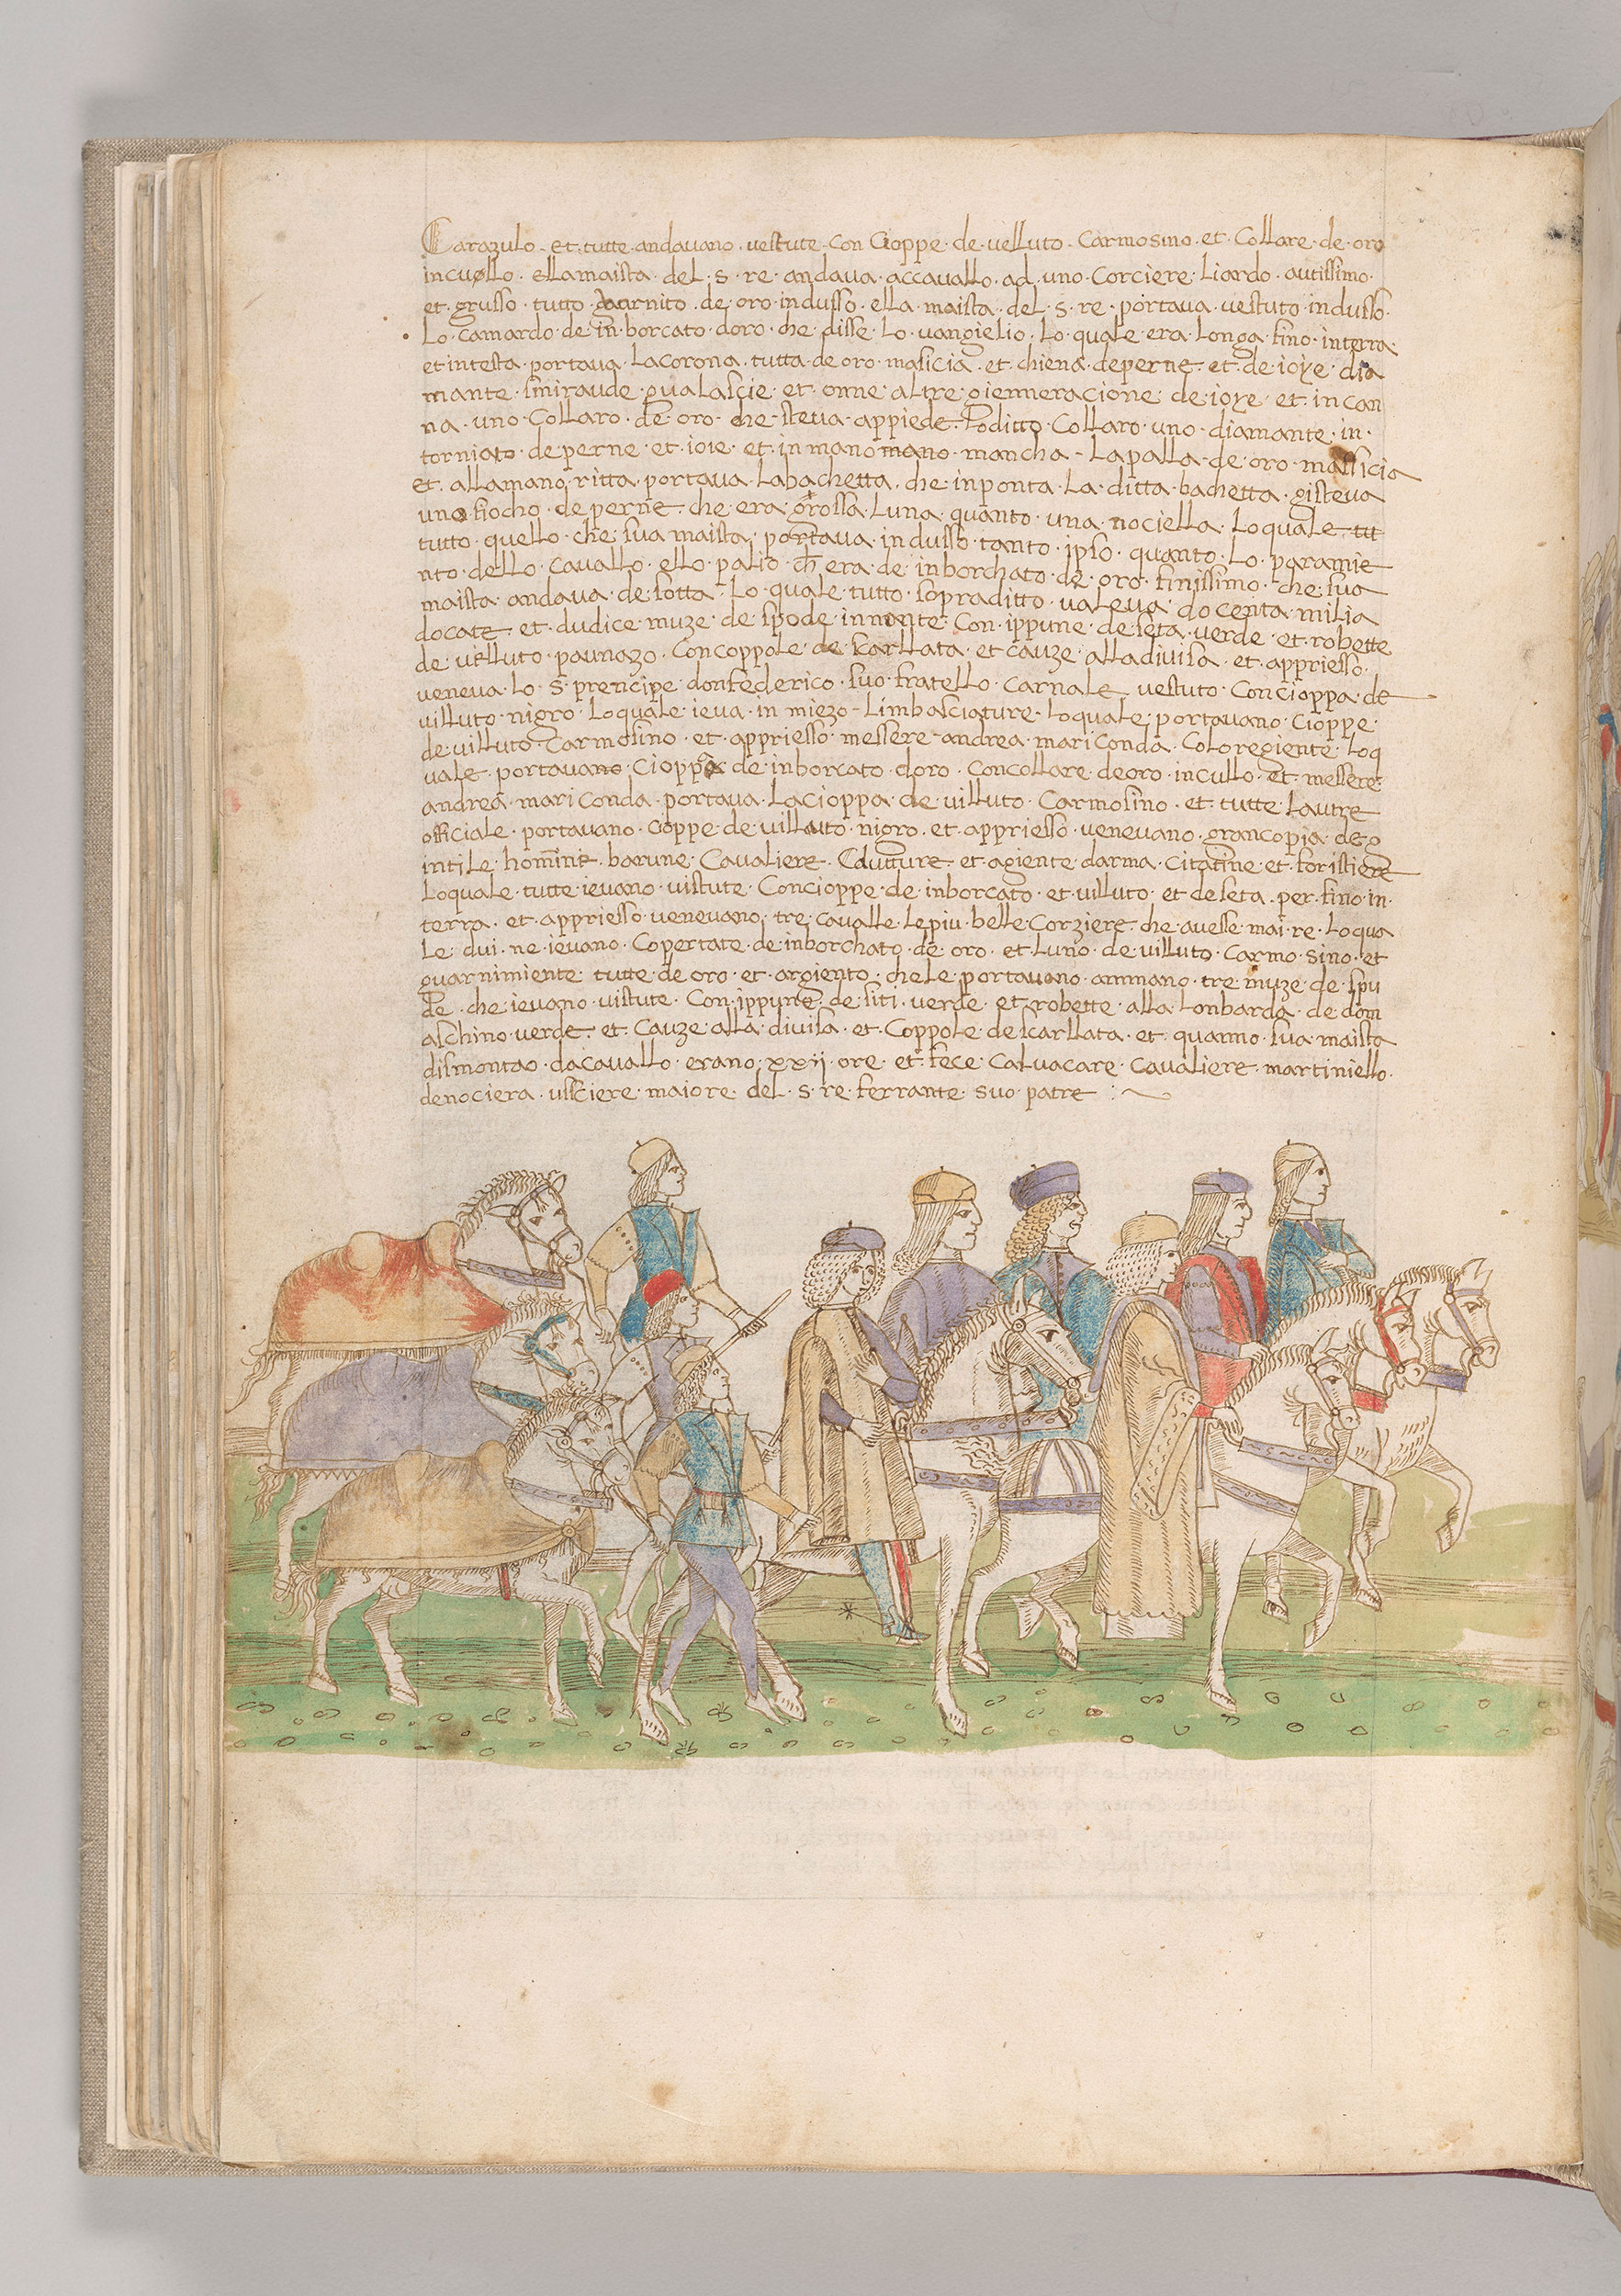 Carazulo · et · tutte · andavano · vestute · Con Cioppe · de · velluto · Carmosino · et · Collare · de · oro
incuollo · ellamaista · del · s · re · andava · accavallo · ad · uno · Corciere · Liardo · autissimo ·
et · grusso · tutto · de · oro · indusso · ella · maista · del · s · re · portava · vestuto · indusso ·
Lo · camardo · de in borcato · doro · che · disse · Lo · vangielio · Lo · quale · era · Longa · fino · interra ·
et intesta · portava · Lacorona · tutta · de oro · masicia · et · chiena · deperne · et · de · ioye · dia
mante · smiraude · et · onne · altre · gienneracione · de · ioye · et · in can
na · uno · Collaro · de · oro · che · steva · appiede · Loditto · Collaro · uno · diamante · in ·
torniato · de perne · et · ioie · et · in mano mano · mancha · Lapalla · de · oro · massicia
et · allamano · ritta · portava · Labachetta · che · inponta · La · ditta · bachetta · gisteva
uno fiocho · de perne · che · era · grossa · Luna · quanto · una · nociella · Lo quale · tu
tutto · quello · che · sua maista · portava · indusso · tanto · ipso · quanto · Lo · paramie
nto · dello · cavallo · ello · palio · ch era · de · inborchato · de · oro · finissimo · che · sua
maista · andava · de · sotta · Lo · quale · tutto · sopraditto · valeva · docenta · milia
docate · et · dudice · muze · de · spode · innante · Con · ippune · de seta · verde · et · robette
de · villuto · paunazo · Con coppole · de · scarllata · et cauze · alladivisa · et · appriesso ·
veneva · Lo · s · prencipe · donfederico · suo · fratello · Carnale · vestuto · Concioppa · de
villuto · nigro · Loquale · ieva · in miezo · Limbasciature · Loquale · portavano · Cioppe ·
de · villuto · Carmosino · et · appriesso · messere · andrea · mariConda · Coloregiente · Loq
uale · portavano · Cioppa · de · inborcato · doro · Concollare · deoro · incullo · et · messere ·
andrea · mariConda · portava · Lacioppa · de · villuto · Carmosino · et · tutte · Lautre
officiale · portavano · Coppe · de villuto · nigro · et · appriesso · venevano · gran copia · de g
intile · homine · barune · Cavaliere · Cdutture · et · agiente · darma · Citatine · et · foristiere
Loquale · tutte · ievano · vistute · Concioppe · de · inborcato · et · villuto · et · de seta · per · fino · in ·
terra · et · appriesso · venevano · tre · cavalle · Lepiu · belle · Corziere · che · avesse · mai · re · Loqua
Le · dui · ne · ievano · Copertate · de inborchato · de · oro · et · Luno · de villuto · Carmo · sino · et
guarnimiente · tutte · de oro · et · argiento · chele · portavano · ammano · tre · muze · de · spu
de · che · ievano · vistute · Con · ippune · de · siti · verde · et · robette · alla · Lonbarda · de · dom
aschino · verde · et · Cauze · alla · divisa · et · Coppole · de scarllata · et · quanno · sua · maista
dismontao · dacavallo · erano · xxii · ore · et · fece · Calvacare · Cavaliere · martiniello ·
denociera · usciere · maiore · del · s · re · ferrante · suo · patre :